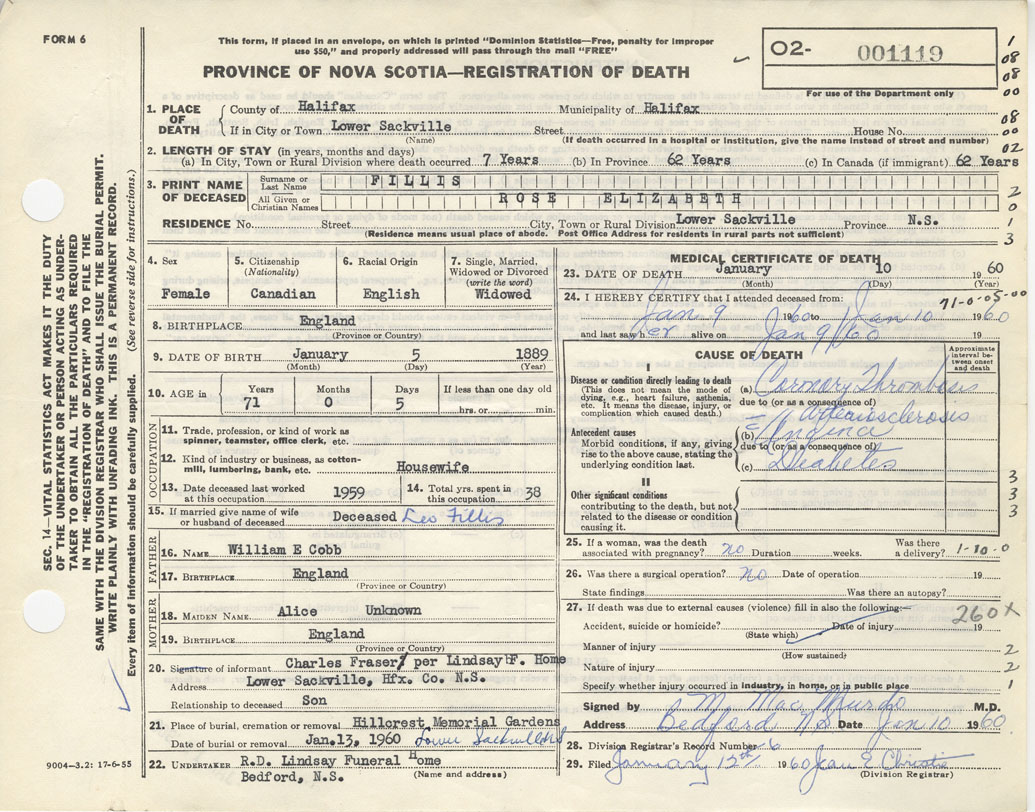 FORM 6
This form, if placed in an envelope, on which is printed "Dominion Statistics—Free, penalty for improper
use $50," and properly addressed will pass through the mail "FREE"
PROVINCE OF NOVA SCOTIA—REGISTRATION OF DEATH
02- 001119
For use of the Department only
1
08
08
00
08
00
02
2
0
1
3
SEC. 14—VITAL STATISTICS ACT MAKES IT THE DUTY
OF THE UNDERTAKER OR PERSON ACTING AS UNDER-
TAKER TO OBTAIN ALL THE PARTICULARS REQUIRED
IN THE "REGISTRATION OF DEATH" AND TO FILE THE
SAME WITH THE DIVISION REGISTRAR WHO SHALL ISSUE THE BURIAL PERMIT.
WRITE PLAINLY WITH UNFADING INK. THIS IS A PERMANENT RECORD.
Every item of information should be carefully supplied. (See reverse side for instructions.)
1. PLACE OF DEATH
County of Halifax Municipality of Halifax
If in City or Town Lower Sackville Street House No.
(Name) (If death occurred in a hospital or institution, give the name instead of street and number)
2. LENGTH OF STAY (in years, months and days)
(a) In City, Town or Rural Division where death occurred 7 Years (b) In Province 62 Years (c) In Canada (if immigrant) 62 Years
3. PRINT NAME OF DECEASED
Surname or Last Name FILLIS
All Given or Christian Names ROSE ELIZABETH
RESIDENCE No. Street City, Town or Rural Division Lower Sackville Province N.S.
(Residence means usual place of abode. Post Office Address for residents in rural parts not sufficient)
4. Sex
Female
5. Citizenship
(Nationality)
Canadian
6. Racial Origin
English
7. Single, Married,
Widowed or Divorced
(write the word)
Widowed
8. BIRTHPLACE England
(Province or Country)
9. DATE OF BIRTH January 5 1889
(Month) (Day) (Year)
10. AGE in
Years Months Days If less than one day old
71 0 5 hrs. or min.
OCCUPATION
11. Trade, profession, or kind of work as
spinner, teamster, office clerk, etc.
12. Kind of industry or business, as cotton-
mill, lumbering, bank, etc. Housewife
13. Date deceased last worked
at this occupation 1959
14. Total yrs. spent in
this occupation 38
15. If married give name of wife
or husband of deceased Deceased Leo Fillis
FATHER
16. NAME William E Cobb
17. BIRTHPLACE England
(Province or Country)
MOTHER
18. MAIDEN NAME Alice Unknown
19. BIRTHPLACE England
(Province or Country)
20. Signature of informant Charles Fraser/ per Lindsay F. Home
Address Lower Sackville, Hfx. Co. N.S.
Relationship to deceased Son
21. Place of burial, cremation or removal Hillcrest Memorial Gardens
Date of burial or removal Jan.13, 1960 Lower Sackville
22. UNDERTAKER R.D. Lindsay Funeral Home
Bedford, N.S. (Name and address)
9004-3.2: 17-6-55
MEDICAL CERTIFICATE OF DEATH
23. DATE OF DEATH January 10 1960
(Month) (Day) (Year)
24. I HEREBY CERTIFY that I attended deceased from: 71-0-05-00
Jan 9 1960 to Jan 10 1960
and last saw her alive on Jan 9/60
CAUSE OF DEATH
Approximate
interval be-
tween onset
and death
I
Disease or condition directly leading to death
(This does not mean the mode of
dying, e.g., heart failure, asthenia,
etc. It means the disease, injury, or
complication which caused death.)
(a) Coronary Thrombosis
due to (or as a consequence of)
Arteriosclerosis
Antecedent causes
Morbid conditions, if any, giving
rise to the above cause, stating the
underlying condition last.
(b) Angina
due to (or as a consequence of)
(c) Diabetes
II
Other significant conditions
contributing to the death, but not
related to the disease or condition
causing it.
3
3
3
25. If a woman, was the death
associated with pregnancy? no Duration weeks. Was there
a delivery? 1-10-0
26. Was there a surgical operation? no Date of operation 19
State findings Was there an autopsy?
27. If death was due to external causes (violence) fill in also the following:— 260X
Accident, suicide or homicide? Date of injury 19
(State which)
Manner of injury 2
(How sustained)
Nature of injury 2
Specify whether injury occurred in industry, in home, or in public place 1
Signed by M. MacMurdo M.D.
Address Bedford N.S. Date Jan 10 1960
28. Division Registrar's Record Number 6
29. Filed January 12th 1960 Jean E Christie
(Division Registrar)